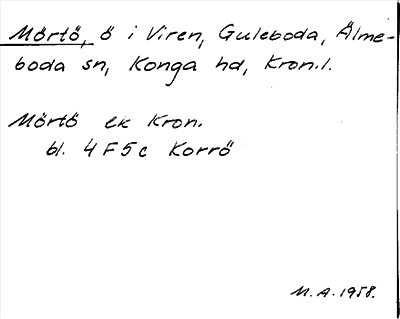 Mörtö, ö i Viren, Guleboda, Älme-
boda sn, Konga hd, Kron.l.
Mörtö ek Kron.
bl. 4 F 5 c Korrö
M.A. 1958.